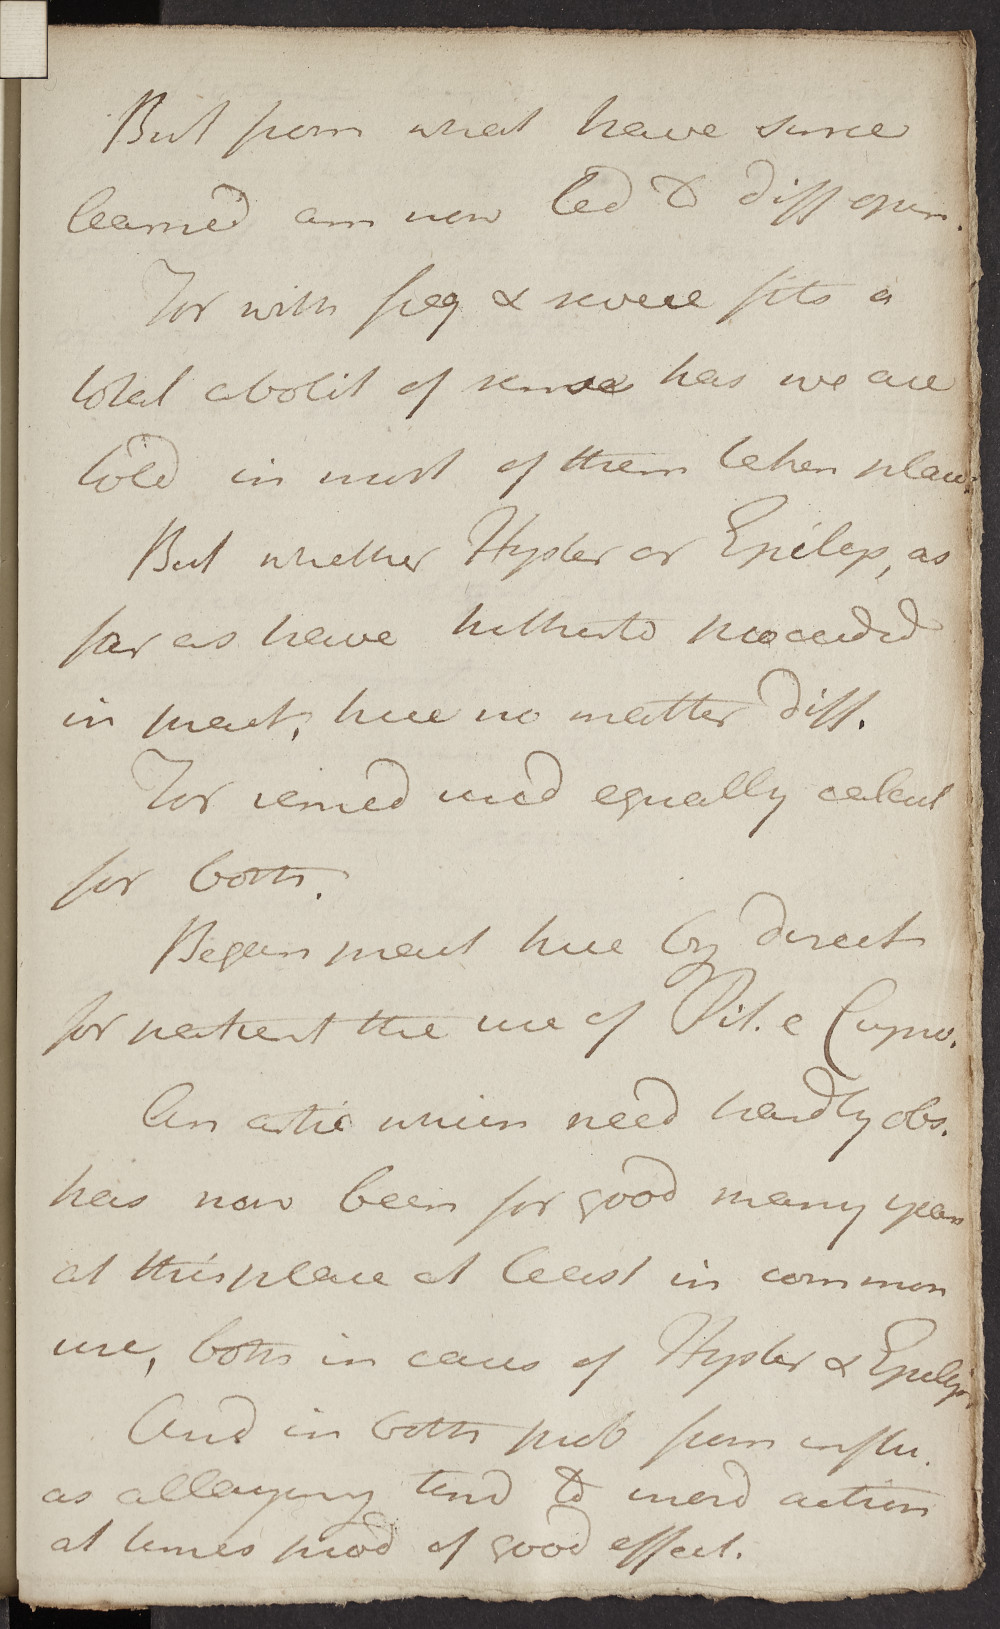 But from what have since
learned am now led to diff opin.
For with freq & severe fits a
total abolit of sense has we are
told in most of them taken place.
But whether Hyster or Epilep, as
far as have hitherto proceeded
in pract, here no matter diff.
For remed used equally calcul
for both.
Began pract here by direct
for patient the use of Pil. e Cupro.
An artic which need hardly obs.
has now been for good many years
at this place at least in common
use, both in cases of Hyster & Epilep,
And in both prob from influ.
as allaying tend to inord action
at times prod of good effect.